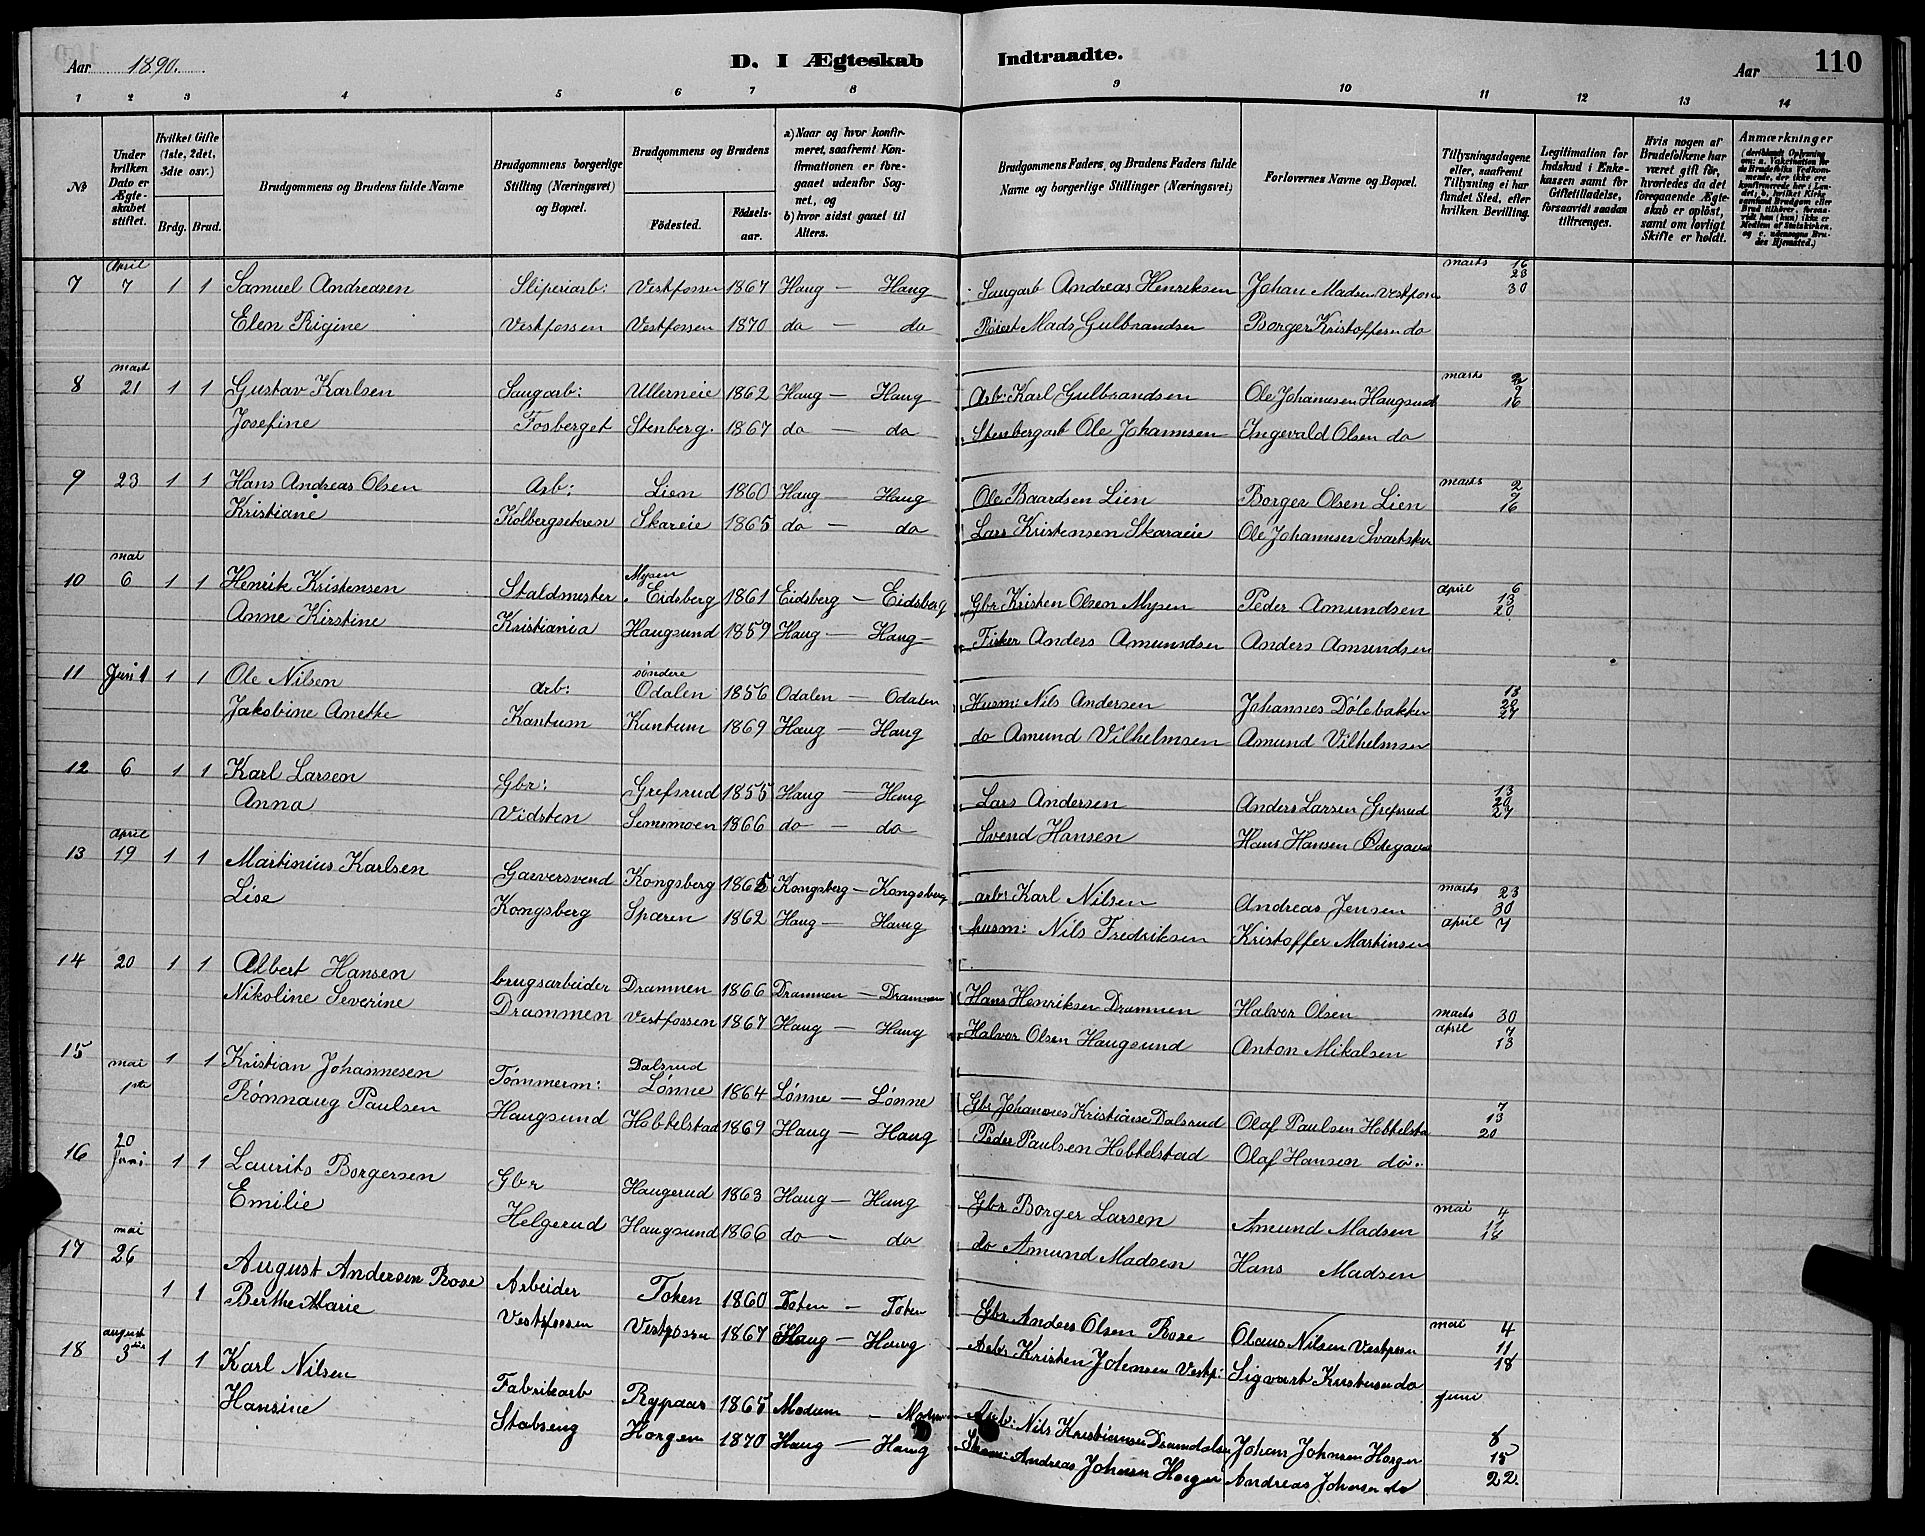 Aar 1890. D. I Ægteskab Indtraadte. Aar 110
1 2 3 4 5 6 7 8 9 10 11 12 13 14
№ Under hvilken Dato er Ægteskabet stiftet. Hvilket Gifte (1ste, 2det, 3die osv.) Brdg. Brud. Brudgommens og Brudens fulde Navne Brudgommens borgerlige Stilling (Næringsvei) og Bopæl. Brudgommens og Brudens Fødested. Fødselsaar. a) Naar og hvor konfirmeret, saafremt Konfirmationen er foregaaet udenfor Sognet, og b) hvor sidst gaaet til Alters. Brudgommens Faders, og Brudens Faders fulde Navne og borgerlige Stillinger (Næringsvei) Forlovernes Navne og Bopæl. Tillysningsdagene eller, saafremt Tillysning ei har fundet Sted, efter hvilken Bevilling. Legitimation for Indskud i Enkekassen samt for Giftetilladelse, forsaavidt saadan tiltrænges. Hvis nogen af Brudefolkene har været gift før, hvorledes da det foregaaende Ægteskab er opløst, samt om lovligt Skifte er holdt. Anmærkninger
April marts 16 23
7 7 1 1 Samuel Andreasen Sliperiarb: Vestfossen 1867 Haug — Haug Saugarb Andreas Henriksen Johan Madsen Vestfossen 30
Elen Rigine Vestfossen Vestfossen 1870 do — do Mads Gulbrandsen Borger Kristoffersen do
mart marts 2
8 21 1 1 Gustav Karlsen Saugarb: Ullerneie 1862 Haug — Haug Arb: Karl Gulbrandsen Ole Johannesen Haugsund 9 16
Josefine Fosberget Stenberg. 1867 do — do Stenbergarb Ole Johannesen Ingevald Olsen do
9 23 1 1 Hans Andreas Olsen Arb: Lien 1860 Haug — Haug Ole Baardsen Lien Borger Olsen Lien marts 2 9 16
Kristiane Kolbergseteren Skareie 1865 do — do Lars Kristensen Skaraeie Ole Johannesen
mai Mysen
10 6 1 1 Henrik Kristensen Staldmester Eidsberg 1861 Eidsberg — Eidsberg Gbr Kristen Olsen Mysen Peder Amundsen april 6 13 20
Anne Kirstine Kristiania Haugsund 1859 Haug — Haug Fisker Anders Amundsen Anders Amundsen
søndere
11 Juni 1 1 1 Ole Nilsen Arb: Odalen 1856 Odalen — Odalen Husm: Nils Andersen Johannes Dølebakken 13 20 27
Jakobine Anethe Kantum Kantum 1869 Haug — Haug do Amund Vilhelmsen Amund Vilhelmsen
12 6 1 1 Karl Larsen Gbr: Grefsrud 1855 Haug — Haug Lars Andersen Anders Larsen Grefsrud 13 20 27
Anna Vidsten Semsmoen 1866 do — do Svend Hansen Hans Hansen Ødegaard
april
13 19 1 1 Martinius Karlsen Garversvend Kongsberg 1865 Kongsberg — Kongsberg arb: Karl Nilsen Andreas Jensen marts 23 30
Lise Kongsberg Sparen 1862 Haug — Haug husm: Nils Fredriksen Kristoffer Martinsen april 7
14 20 1 1 Albert Hansen brugsarbeider Drammen 1866 Drammen — Drammen Hans Henriksen Drammen Halvor Olsen marts 30
Nikoline Severine Drammen Vestfossen 1867 Haug — Haug Halvor Olsen Haugsund Anton Mikalsen april 7 13
mai Dalsrud
15 1ste 1 1 Kristian Johannesen Tømmerm: Lønne 1864 Lønne — Lønne Gbr Johannes Kristiansen Dalsrud Olaf Paulsen Hobbelsta 7 13 20
Rønnaug Paulsen Haugsund Hobbelstad 1869 Haug — Haug Peder Paulsen Hobbelstad Olaf Hansen do.
16 20 Juni 1 1 Laurits Borgersen Gbr Haugerud 1863 Haug — Haug Gbr Borger Larsen Amund Madsen mai 4 11 18
Emilie Helgerud Haugsund 1866 do — do do Amund Madsen Hans Madsen
mai
17 26 1 1 August Andersen Rose Arbeider Toten 1860 Toten — Toten Gbr Anders Olsen Rose Olaus Nilsen Vestfossen mai 4 11 18
Berthe Marie Vestfossen Vestfossen 1867 Haug — Haug Arb: Kristen Johansen Vestf: Sigvart Kristensen do
august
18 3die 1 1 Karl Nilsen Fabrikarb Rypaas 1865 Modum — Modum Arb: Nils Kristiansen Dramdalen Johans Johnsen Horgen juni 8 15 22.
Hansine Stabseng Horgen 1870 Haug — Haug Andreas Johnsen Horgen Andreas Johnsen do